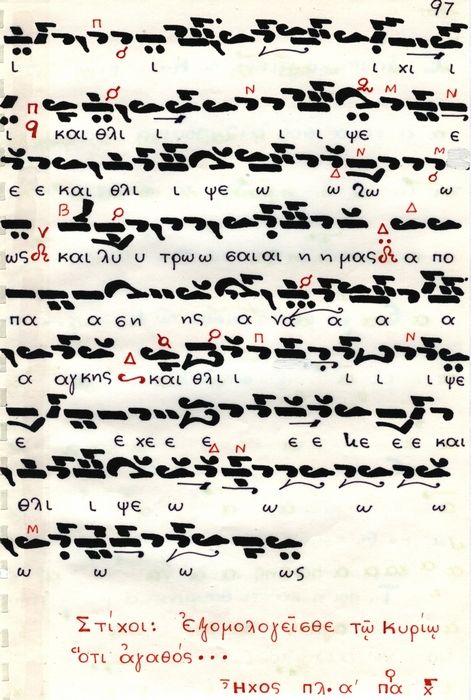 97
Π
ι ι ι χι ι
Π Ν Μ Ν
q και θλι ι ι ι ψε ε
Ν Μ
ε ε και θλι ι ψε ω ω Δ ω ω
Β
ως και λυ υ τρω ω σαι αι η η μας Δ α πο
πα α ση ης α να α α α
Π Ν
α αγκης Δ και θλι ι ι ι ι ψε
ε ε χε ε ε ε ε κε ε ε και
Δ Ν
θλι ι ψε ω ω ω ω ω
Μ
ω ω ω ως
Στίχοι: Ἐξομολογεῖσθε τῷ Κυρίῳ
ὅτι ἀγαθός...
Ἦχος πλ. α' πα